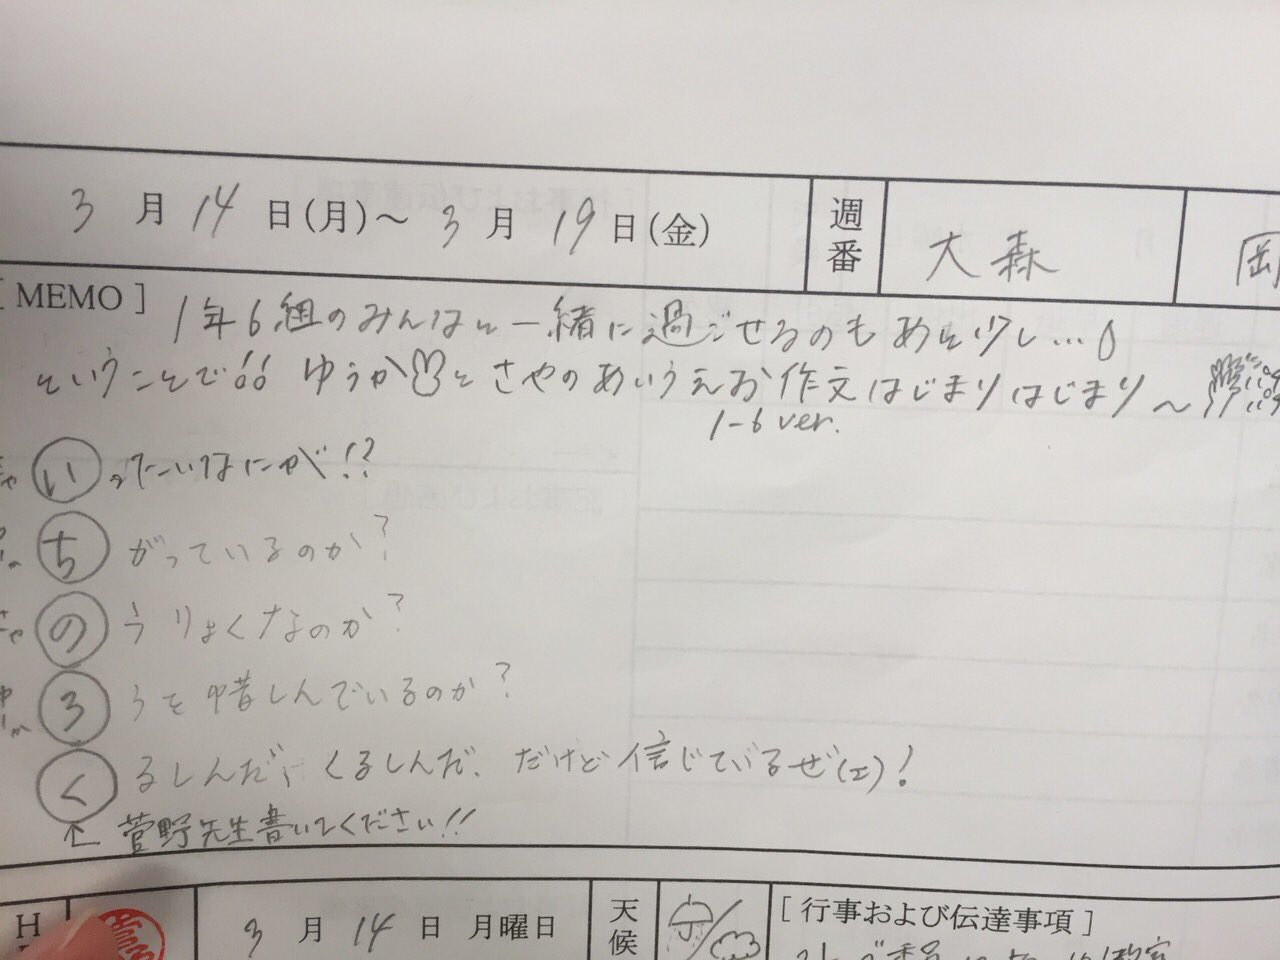 3月14日(月)～3月19日(金) 週番 大森 岡
[MEMO] 1年6組のみんなと一緒に過ごせるのもあと少し…
ということで!! ゆうか♡とさやのあいうえお作文はじまりはじまり～
1-6 ver.
いったいなにが!?
ちがっているのか?
のうりょくなのか?
ろうを惜しんでいるのか?
くるしんだ、くるしんだ、だけど信じているぜ(エ)!
↑ 菅野先生書いてください!!
H 3月14日 月曜日 天候 [行事および伝達事項]